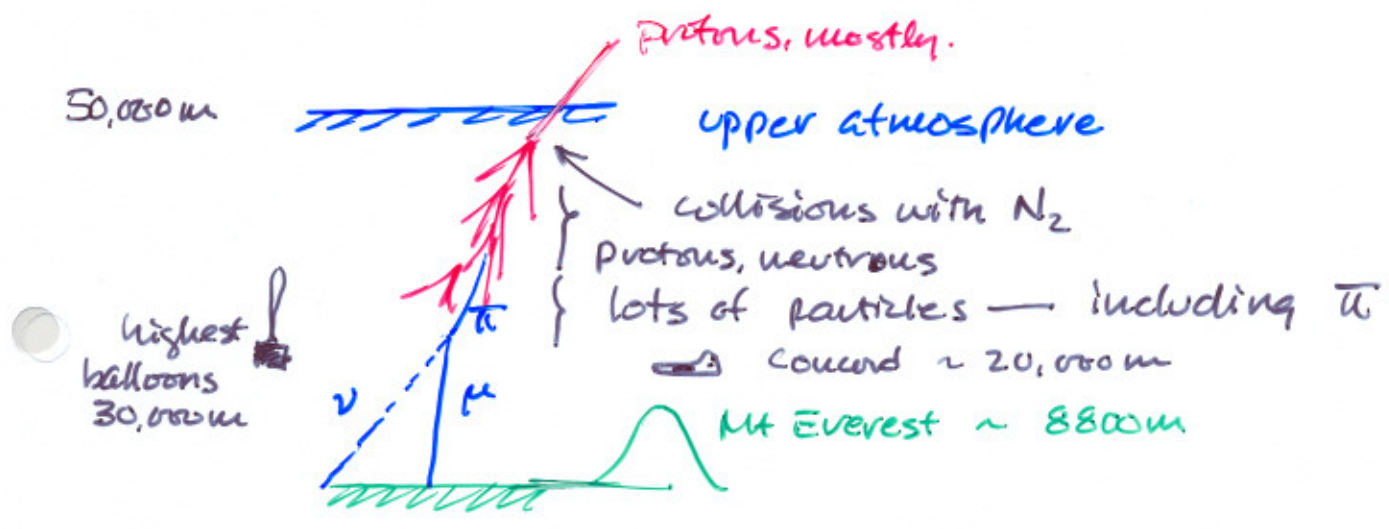 protons, mostly.
50,000m
upper atmosphere
collisions with N₂
protons, neutrons
lots of particles — including π
highest
balloons
30,000m
π
Concord ~ 20,000m
ν
μ
Mt Everest ~ 8800m